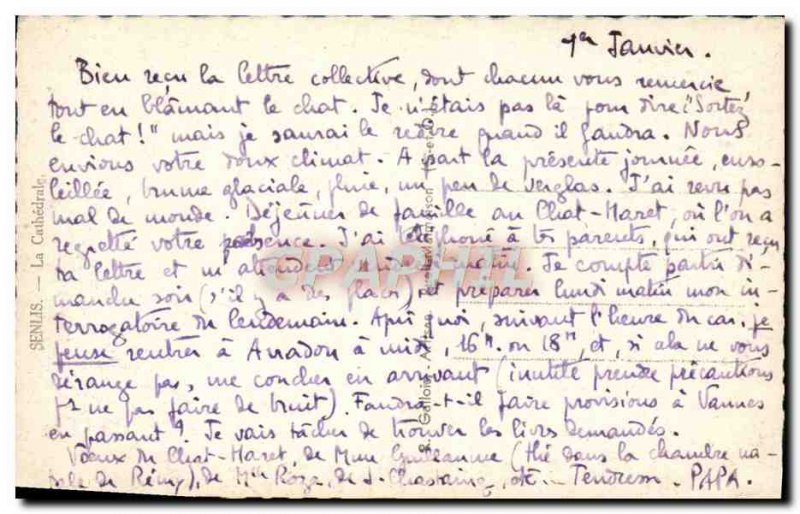 1er Janvier.
Bien reçu la lettre collective, dont chacun vous remercie,
tout en blâmant le chat. Je n'étais pas là pour dire "Sortez
le chat!" mais je saurai le redire quand il faudra. Nous
envions votre doux climat. A part la présente journée, enso-
leillée, brume glaciale, pluie, un peu de verglas. J'ai revu pas
mal de monde. Déjeuner de famille au Chat-Haret, où l'on a
regretté votre présence. J'ai téléphoné à tes parents, qui ont reçu
ta lettre et m'attendent matin. Je compte partir di-
manche soir (s'il y a des places) et préparer lundi matin mon in-
terrogatoire du lendemain. Après quoi, suivant l'heure du car, je
pense rentrer à Arradon à midi, 16h. ou 18h, et, si cela ne vous
dérange pas, me coucher en arrivant (inutile prendre précautions
pr ne pas faire de bruit). Faudra-t-il faire provisions à Vannes
en passant? Je vais tâcher de trouver les livres demandés.
Voeux du Chat-Haret, de Mme Guillaume (thé dans la chambre na-
tale de Rémy), de Mlle Roze, de J. Chastaing, etc. Tendresses. PAPA.
SENLIS. — La Cathédrale.
CPAPHIL